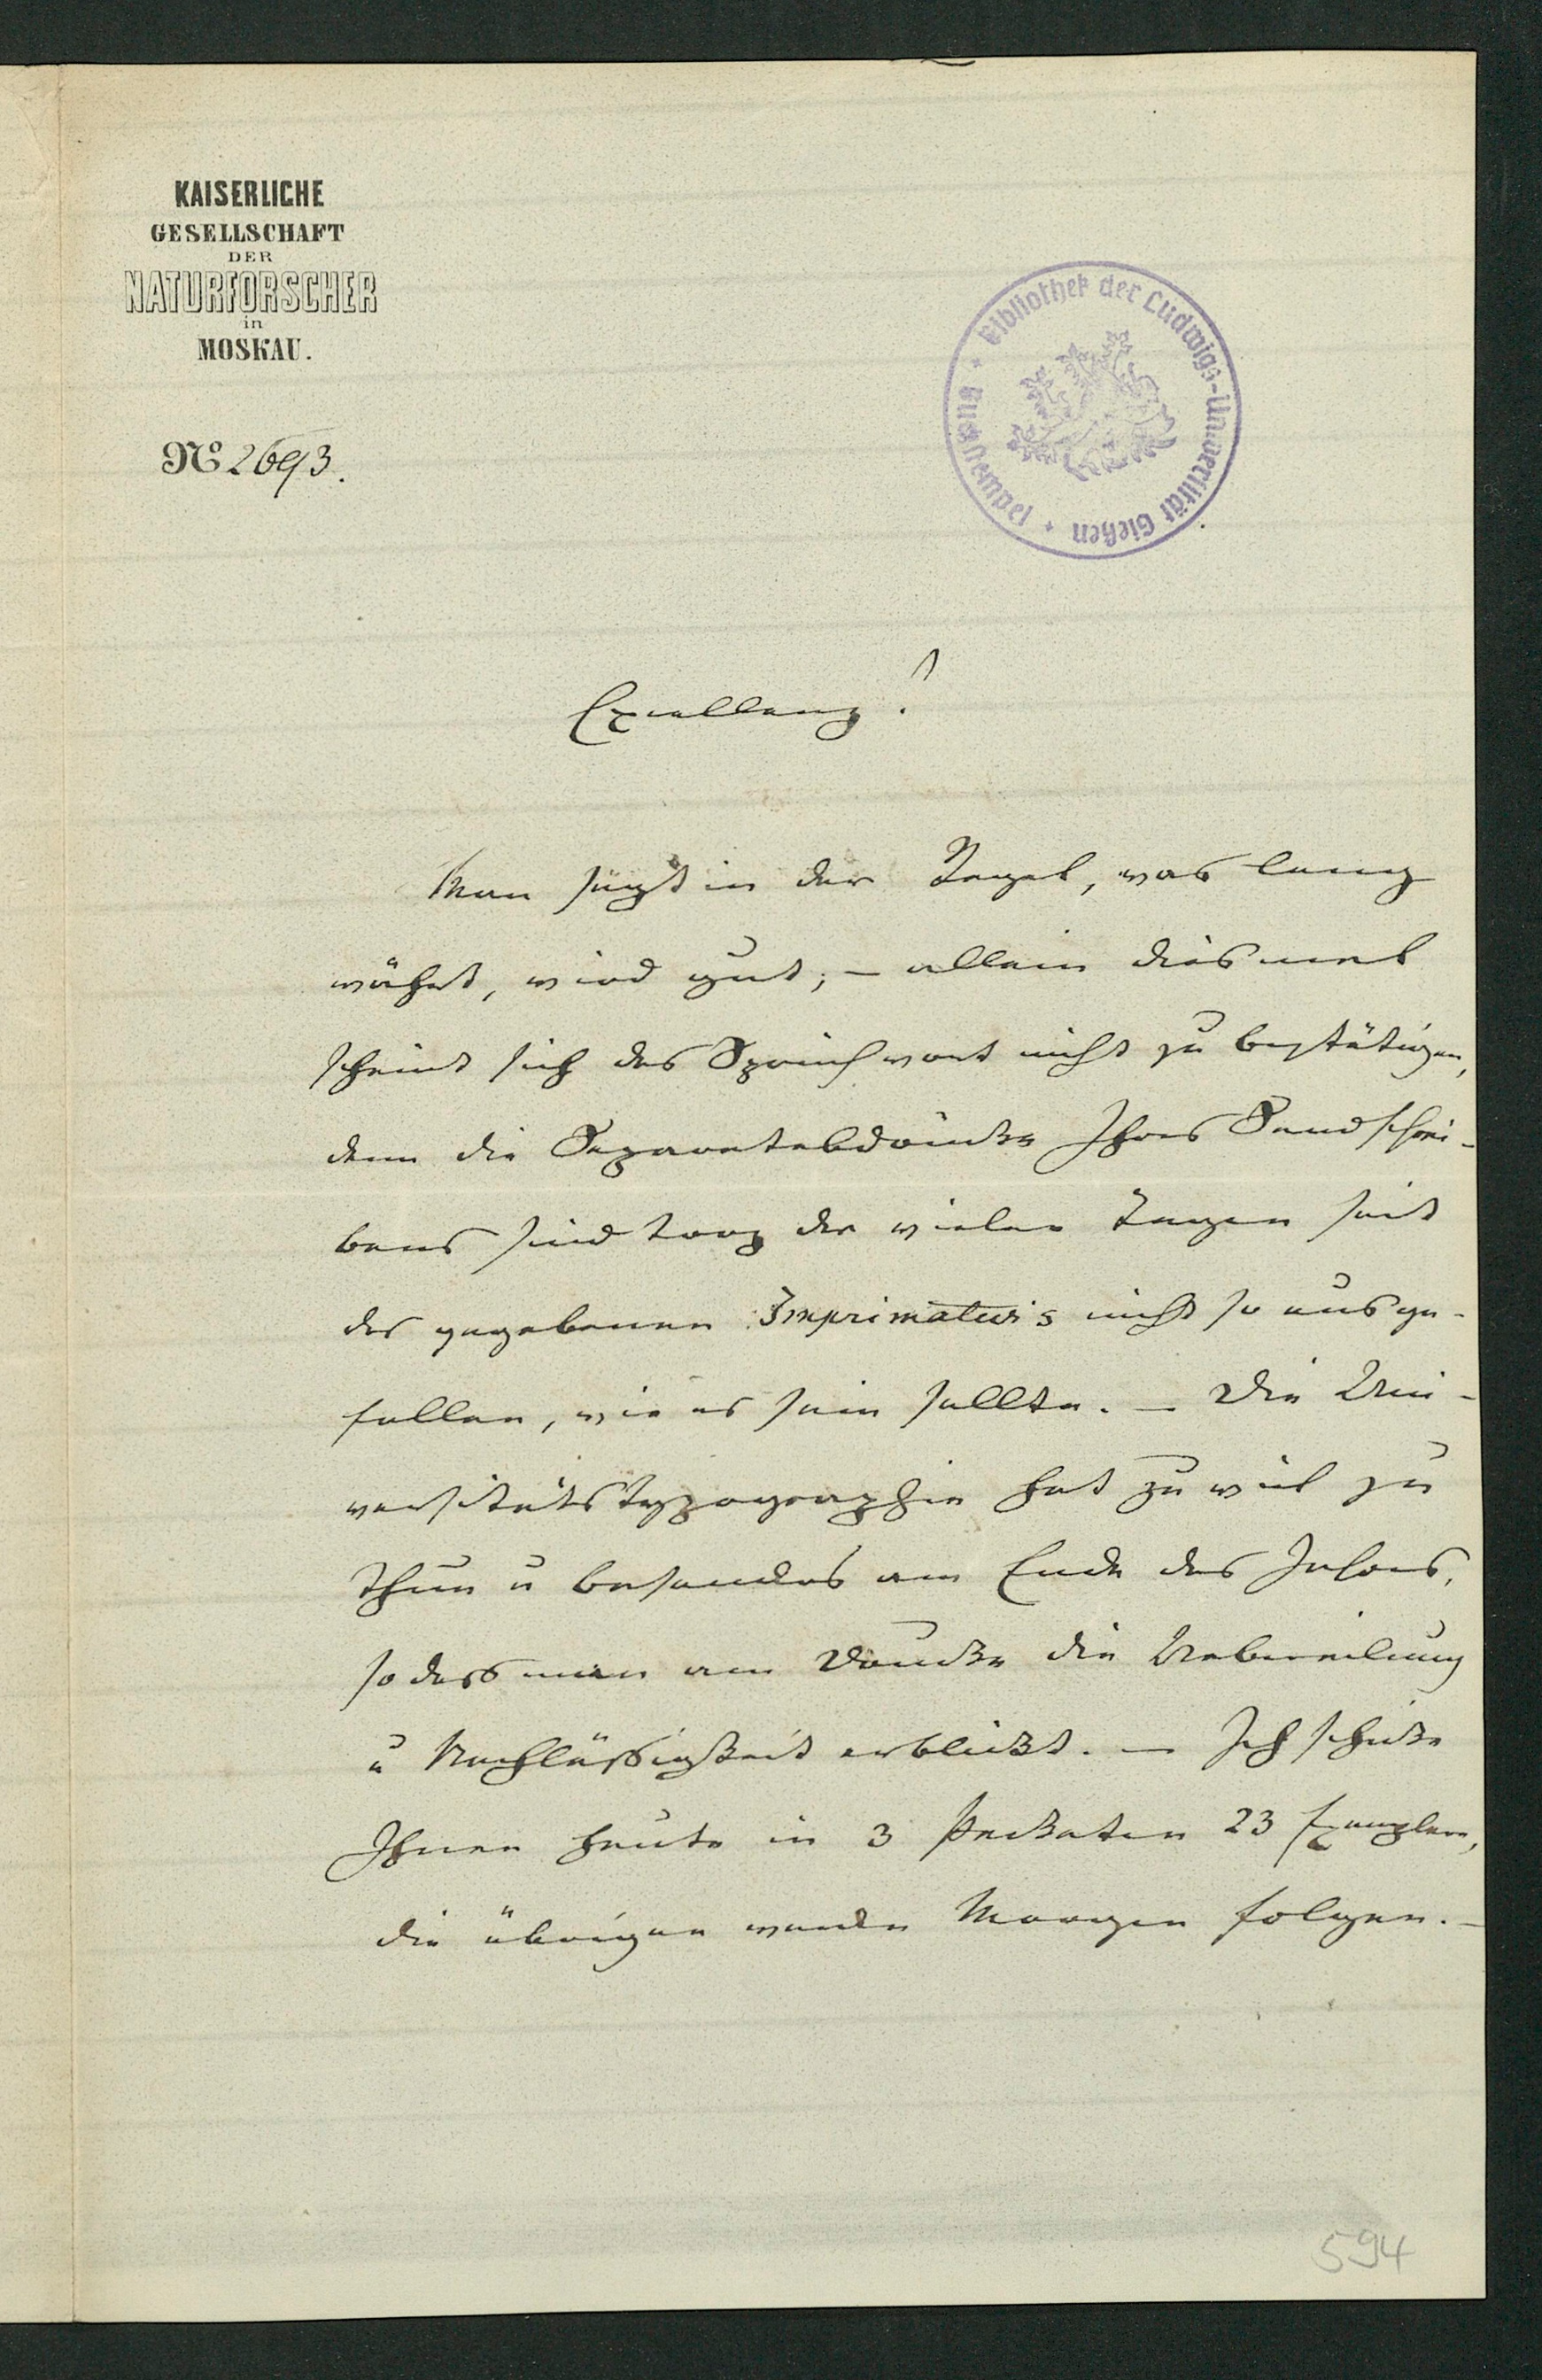 KAISERLICHE
GESELLSCHAFT
DER
NATURFORSCHER
in
MOSKAU.
№ 2693.
Bibliothek der Ludwigs-Universität Gießen * Tauschstempel *
Excellenz!
Man sagt in der Regel, was lang
währt, wird gut; – allein diesmal
scheint sich das Sprüchwort nicht zu bestätigen,
denn die Separatabdrücke Ihres Sendschrei-
bens sind trotz der vielen Tagen seit
des gegebenen Imprimaturs nicht so ausge-
fallen, wie es sein sollte. – Die Uni-
versitätstypographie hat zu viel zu
thun u besonders am Ende des Jahres,
so dass man am Drucke die Uebereilung
u Nachlässigkeit erblickt. – Ich schicke
Ihnen heute in 3 Packeten 23 Exemplare,
die übrigen werden Morgen folgen. –
594